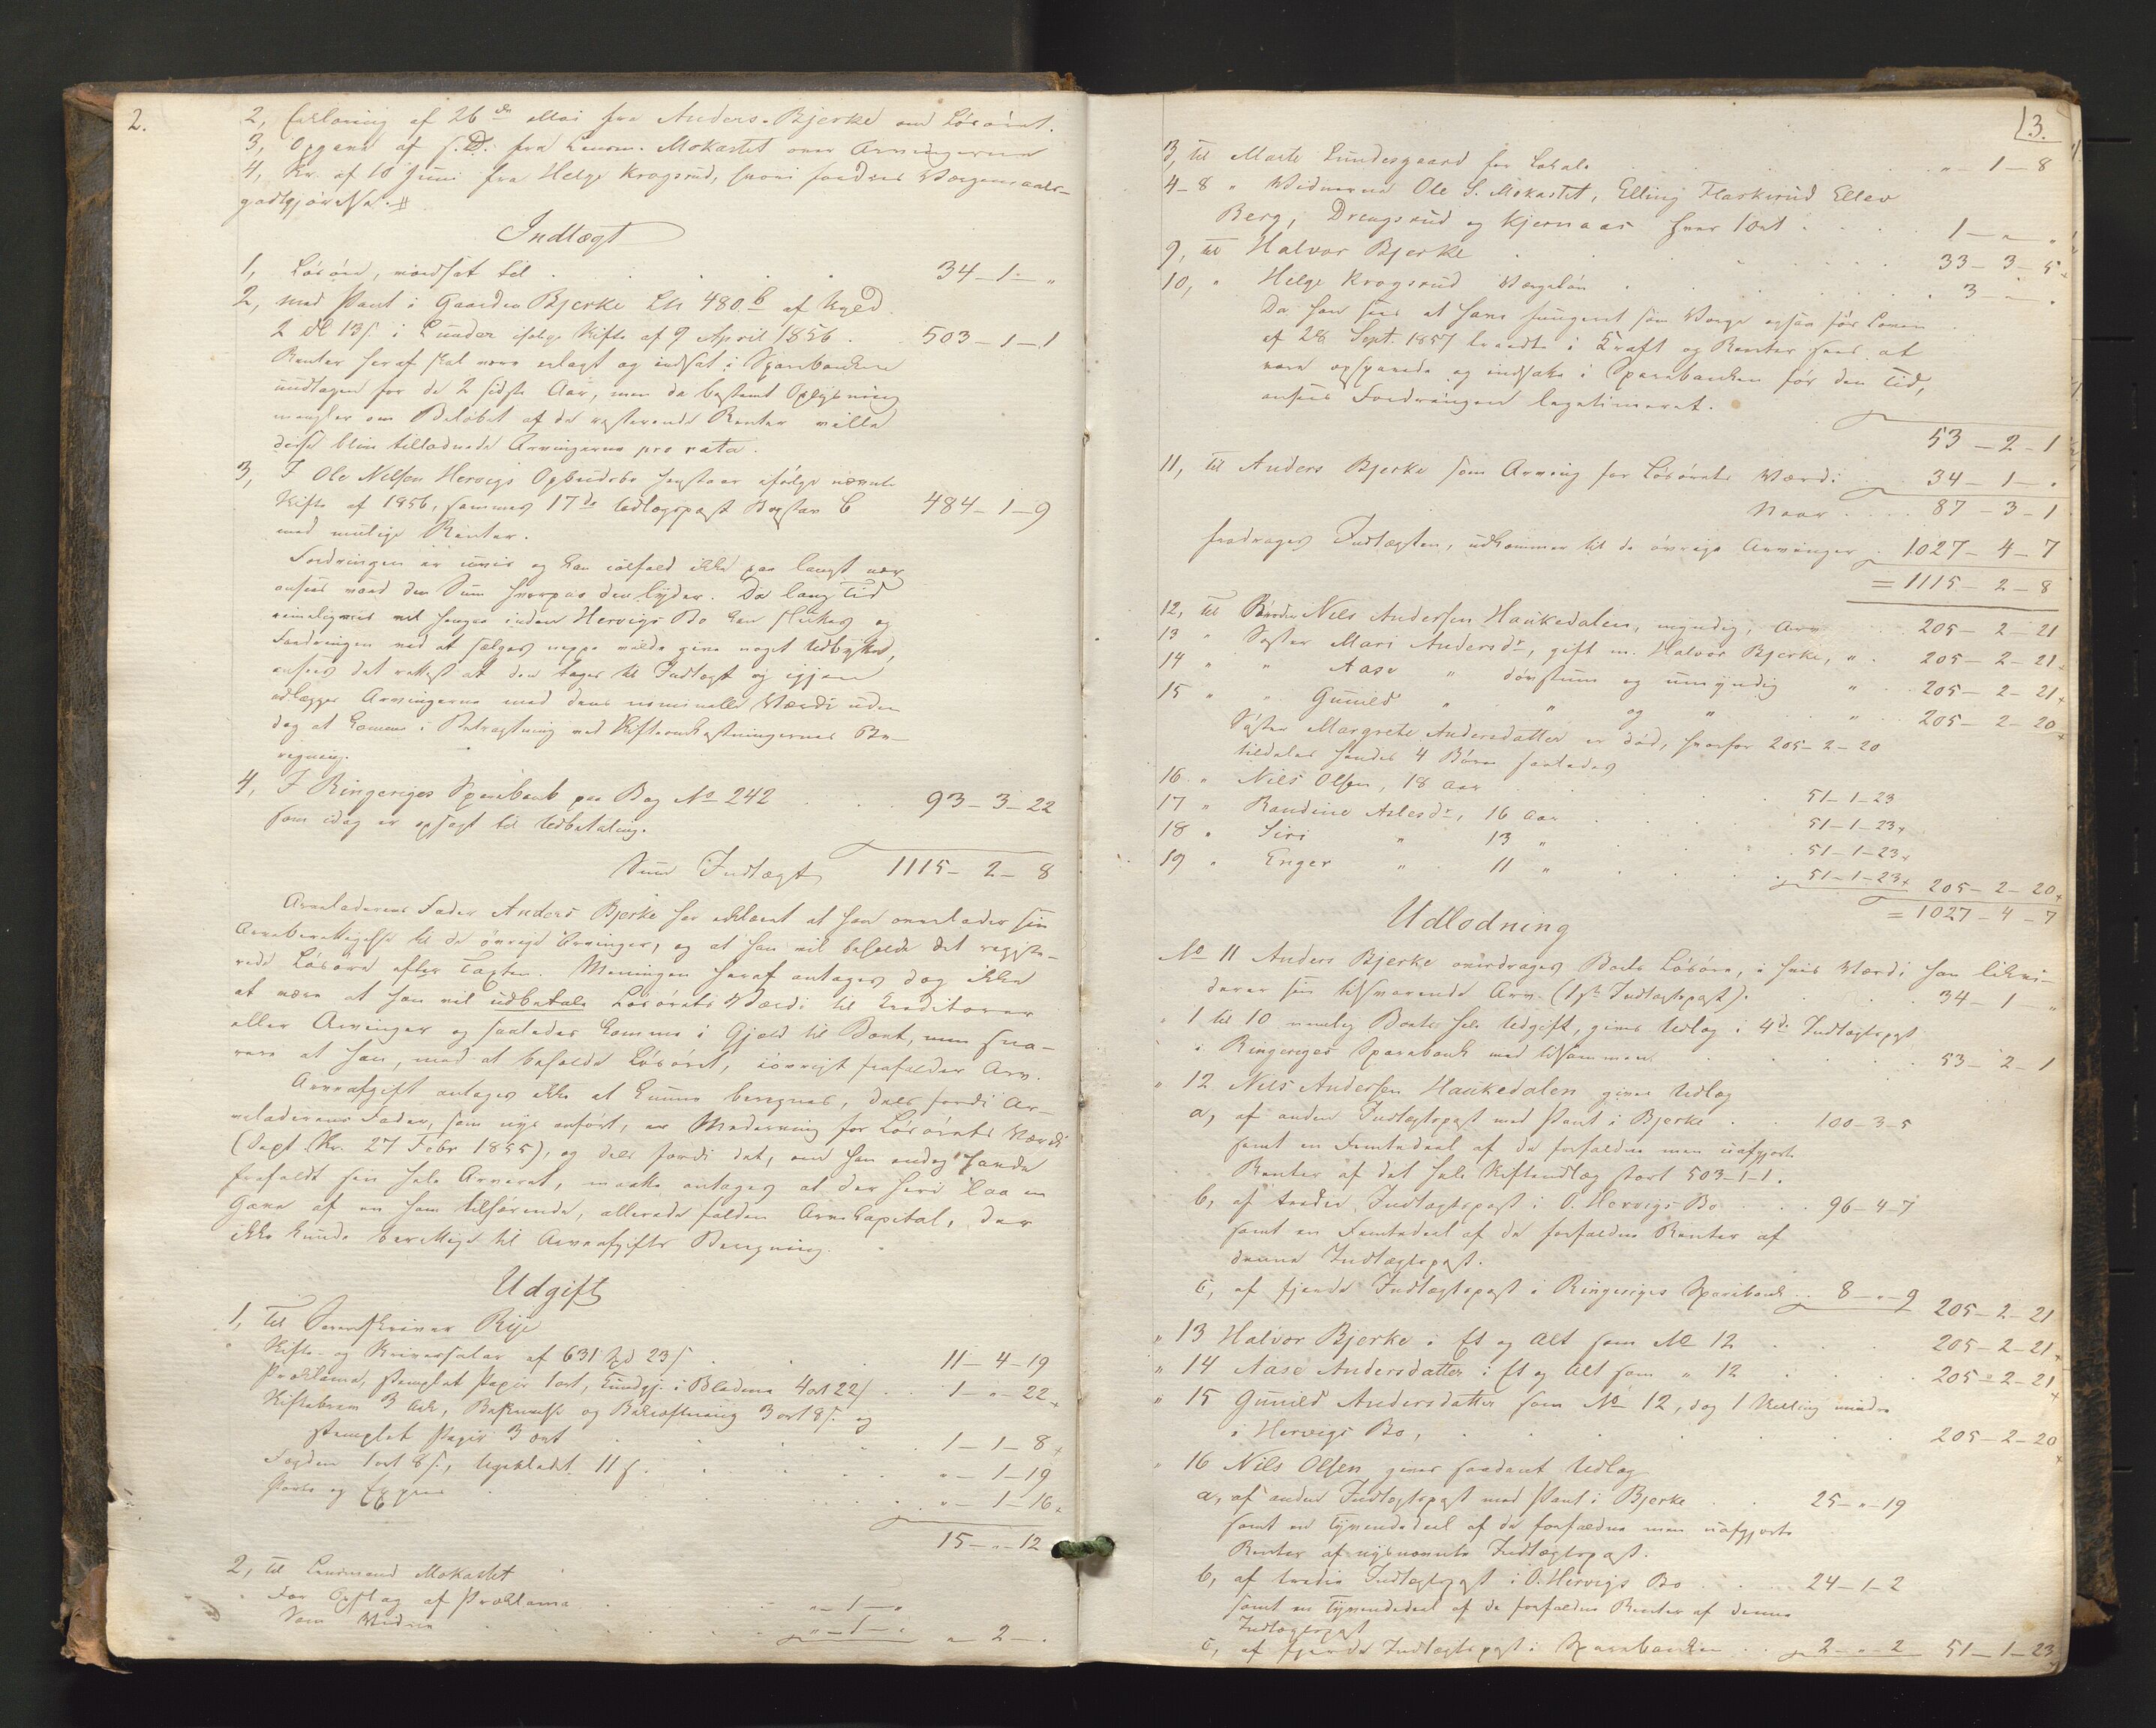 2.
2, Erklæring af 26de Mai fra Anders Bjerke om Løsøret.
3, Opgave af s. D. fra Lensm. Mokastet over Arvingerne
4, Kr. af 10 Juni fra Helge Krogsrud, hvori fordres Værgemaals-
godtgjørelse.
Indtægt
1, Løsøre, vurdsat til . . . 34 – 1 – „
2, med Pant i Gaarden Bjerke LN 480.b af Skyld
2 dl. 13 s. i Lunder ifølge Skifte af 9 April 1856 . . 503 – 1 – 1
Renter heraf skal være erlagt og indsat i Sparebanken
undtagen for de 2 sidste Aar, men da bestemt Oplysning
mangler om Beløbet af de resterende Renter ville
disse blive tillodnede Arvingerne pro rata.
3, I Ole Nelsen Hervigs Opbudsbo henstaar ifølge nævnte
Skifte af 1856, sammes 17de Udlægspost Bogstav C 484 – 1 – 9
med mulige Renter.
Fordringen er uvis og kan ialfald ikke paa langt nær
ansees værd den Sum hvorpaa den lyder. Da lang Tid
rimeligviis vil henge inden Hervigs Bo kan sluttes og
Fordringen ved at sælges neppe vilde give noget Udbytte,
ansees det rettest at den tages til Indtægt og igjen
udlægges Arvingerne med dens nominelle Værdi uden
dog at komme i Betragtning ved Skifteomkostningernes Be-
regning.
4, I Ringeriges Sparebank paa Bog No 242 . . . 93 – 3 – 22
som idag er opsagt til Udbetaling.
Sum Indtægt 1115 – 2 – 8
Arveladerens Fader Anders Bjerke har erklæret at han overlader sin
Arveberettigelse til de øvrige Arvinger, og at han vil beholde det registre-
rede Løsøre efter Taxten. Meningen heraf antages dog ikke
at være at han vil udbetale Løsørets Værdi til Kreditorer
eller Arvinger og saaledes komme i Gjæld til Boet, men sna-
rere at han, med at beholde Løsøret, iøvrigt frafalder Arv.
Arveafgift antages ikke at kunne beregnes, dels fordi Ar-
veladerens Fader, som nys anført, er Medarving for Løsørets Værdi
(Dept. Skr. 27 Febr 1855), og dels fordi det, om han endog havde
frafaldt sin hele Arveret, maatte antages at der heri laa en
Gave af en ham tilhørende, allerede falden Arvekapital, der
ikke kunde berettige til Arveafgifts Beregning.
Udgift
1, Til Sorenskriver Rije
Skifte- og Skriversalær af 631 Spd 23 s . . . 11 – 4 – 19
Proklama, stemplet Papir 1 ort, Kundgj. i Bladene 4 ort 22 s . . 1 „ – 22
Skiftebrev 3 Ark, Beskrivelse og Bekræftning 3 ort 8 s. og
stemplet Papir 3 ort . . . 1 – 1 – 8
Fogden 1 ort 8 s., Ugebladet 11 s. . . . „ – 1 – 19
Porto og Expres . . . „ – 1 – 16
15 – „ – 12
2, til Lensmand Mokastet
For Opslag af Proklama . . . „ – 1 – „
Som Vidne . . . „ – 1 – „ „ – 2 – „
3.
3, til Marte Lundesgaard for Lokale . . . „ – 1 – 8
4–8 „ Vidnerne Ole S. Mokastet, Elling Flaskerud Ellev
Berg, Drengsrud og Kjernaas hver 1 ort . . . 1 – „ – „
9, til Halvor Bjerke . . . 33 – 3 – 5
10, „ Helge Krogsrud Værgeløn . . . 3 – „ – „
Da han sees at have fungeret som Værge ogsaa før Loven
af 28 Sept. 1857 traadte i Kraft og Renter sees at
være opsparede og indsatte i Sparebanken før den Tid,
ansees Fordringen legitimeret.
53 – 2 – 1
11, til Anders Bjerke som Arving for Løsørets Værdi . . 34 – 1 – „
Naar . . . 87 – 3 – 1
fradrages Indtægten, udkommer til de øvrige Arvinger . 1027 – 4 – 7
= 1115 – 2 – 8
12, til Broder Nils Andersen Haukedalen, myndig, Arv . . 205 – 2 – 21
13 „ Søster Mari Andersdr, gift m. Halvor Bjerke, „ . 205 – 2 – 21
14 „ „ Aase „ døvstum og umyndig „ . . 205 – 2 – 21
15 „ „ Gunild „ „ og „ „ . . 205 – 2 – 20
Søster Margrete Andersdatter er død, hvorfor 205 – 2 – 20
tildeles hendes 4 Børn saaledes
16 „ Nils Olsen, 18 Aar . . . 51 – 1 – 23
17 „ Randine Aslesdr, 16 Aar . . . 51 – 1 – 23
18 „ Siri „ 13 „ . . . 51 – 1 – 23
19 „ Enger „ 11 „ . . . 51 – 1 – 23 205 – 2 – 20
= 1027 – 4 – 7
Udlodning
No 11 Anders Bjerke overdrages Boets Løsøre, i hvis Værdi han likvi-
derer sin tilsvarende Arv. (1ste Indtægtspost). . . 34 – 1 – „
„ 1 til 10 nemlig Boets hele Udgift, gives Udlæg i 4de Indtægtspost
i Ringeriges Sparebank med tilsammen . . . 53 – 2 – 1
„ 12 Nils Andersen Haukedalen gives Udlæg
a, af anden Indtægtspost med Pant i Bjerke . . 100 – 3 – 5
samt en Femtedeel af de forfaldne men uafgjorte
Renter af det hele Skifteudlæg stort 503 – 1 – 1.
b, af tredie Indtægtspost i O. Hervigs Bo . . . 96 – 4 – 7
samt en Femtedeel af de forfaldne Renter af
denne Indtægtspost.
c, af fjerde Indtægtspost i Ringeriges Sparebank . . 8 – „ – 9 205 – 2 – 21
„ 13 Halvor Bjerke i Et og Alt som No 12 . . . 205 – 2 – 21
„ 14 Aase Andersdatter i Et og Alt som „ 12 . . . 205 – 2 – 21
„ 15 Gunild Andersdatter som No 12, dog 1 Skilling mindre
i Hervigs Bo, . . . 205 – 2 – 20
„ 16 Nils Olsen gives saadant Udlæg
a, af anden Indtægtspost med Pant i Bjerke . . 25 – „ – 19
samt en Tyvendedeel af de forfaldne men uafgjorte
Renter af nysnævnte Indtægtspost.
b, af tredie Indtægtspost i O. Hervigs Bo . . 24 – 1 – 2
samt en Tyvendedeel af de forfaldne Renter af denne
Indtægtspost
c, af fjerde Indtægtspost i Sparebanken . . 2 – „ – 2 51 – 1 – 23